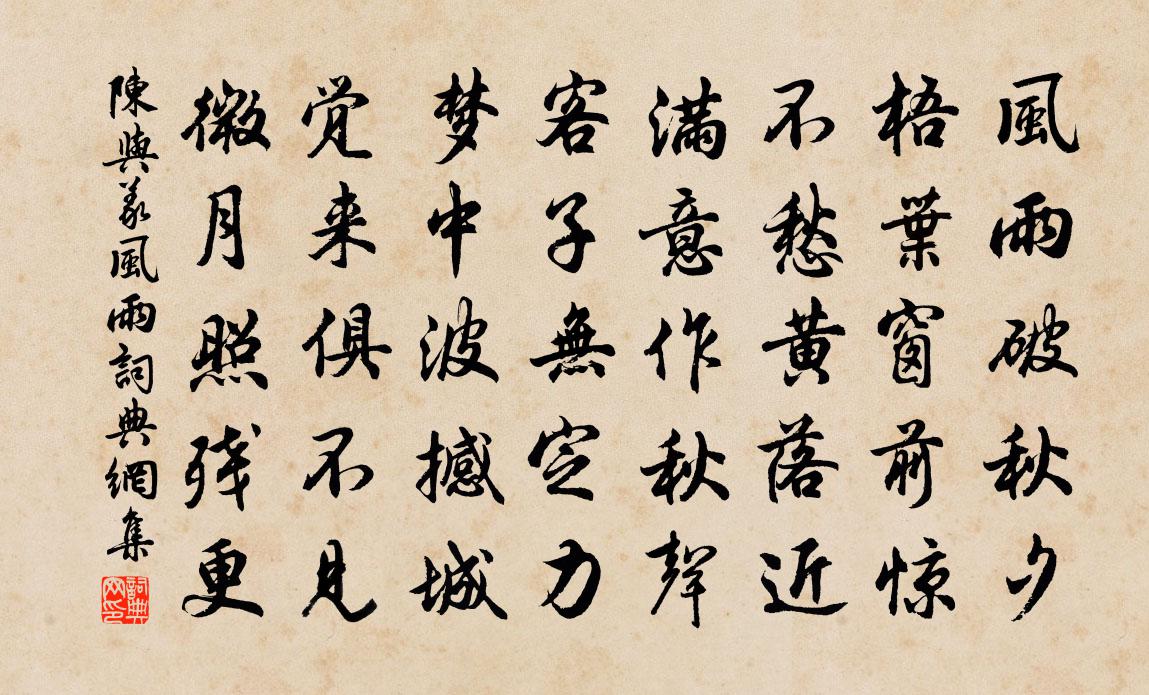 風雨破秋夕
梧葉窗前惊
不愁黄落近
滿意作秋聲
客子無定力
梦中波撼城
觉来俱不見
微月照残更
陳與義風雨詞典網集
詞典網印